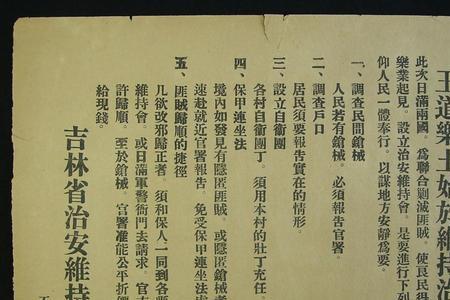 王道樂土
此次日滿兩國。爲聯合剿滅匪賊。使良民得
樂業起見。設立治安維持會。是要進行下列
仰人民一體奉行。以謀地方安靜爲要。
一、調查民間鎗械
人民若有鎗械。必須報告官署。
二、調查戶口
居民須要報告實在的情形。
三、設立自衞團
各村自衞團丁。須用本村的壯丁充任。
四、保甲連坐法
境內如發見有隱匿匪賊。或隱匿鎗械者
速赴就近官署報告。免受保甲連坐法
五、匪賊歸順的捷徑
凡欲改邪歸正者。須和保人一同到各縣
維持會。或日滿軍警衙門去請求。官
許歸順。至於鎗械。官署准能公平折價
給現錢。
吉林省治安維持